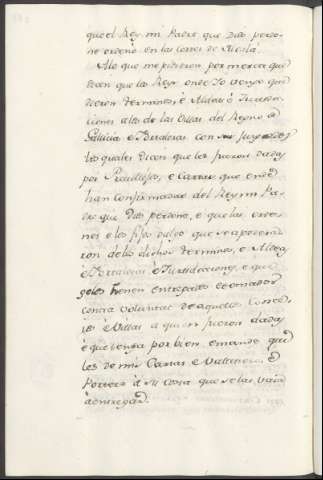 que el Rey mi Padre que Dios perdo-
ne ordenó en las Cortes de Alcalá.
Alo que me pidieron por merced que
bien que los Reyes onde Yo vengo que
dieron terminos é Aldeas é Jurisdic-
ciones a los de las Villas del Reyno de
Gallicia e Portaleras con
los quales dicen que les fueron dadas
por Privillejos, e Cartas que ende
han confirmadas del Rey mi Pa-
dre que Dios perdone, e que las orde-
nes e los fijos dalgo que se apodera-
ron de los dichos terminos, e Aldeas
é Portalerias é Jurisdiciones, e que
gelos tienen entregados e tomados
contra voluntad de aquellos Conce-
jos é Villas a quien fueron dadas
é que tenga por bien, e mande que
les de mis Cartas e Vallesteros, é
Porteros de mi Casa que se las vaian
á entregar.